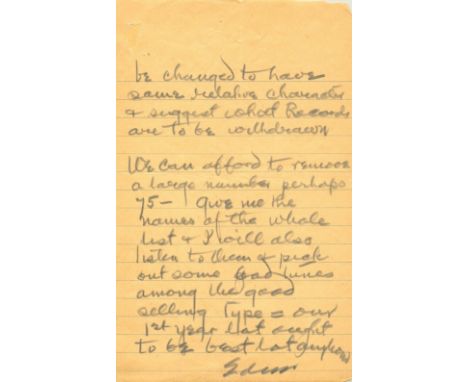 be changed to have
same relative character
& suggest what Records
are to be withdrawn
We can afford to remove
a large number perhaps
75— Give me the
names of the whole
list & I will also
listen to them & pick
out some bad tunes
among the good
selling Type = our
1st year lot ought
to be best lot anyhow